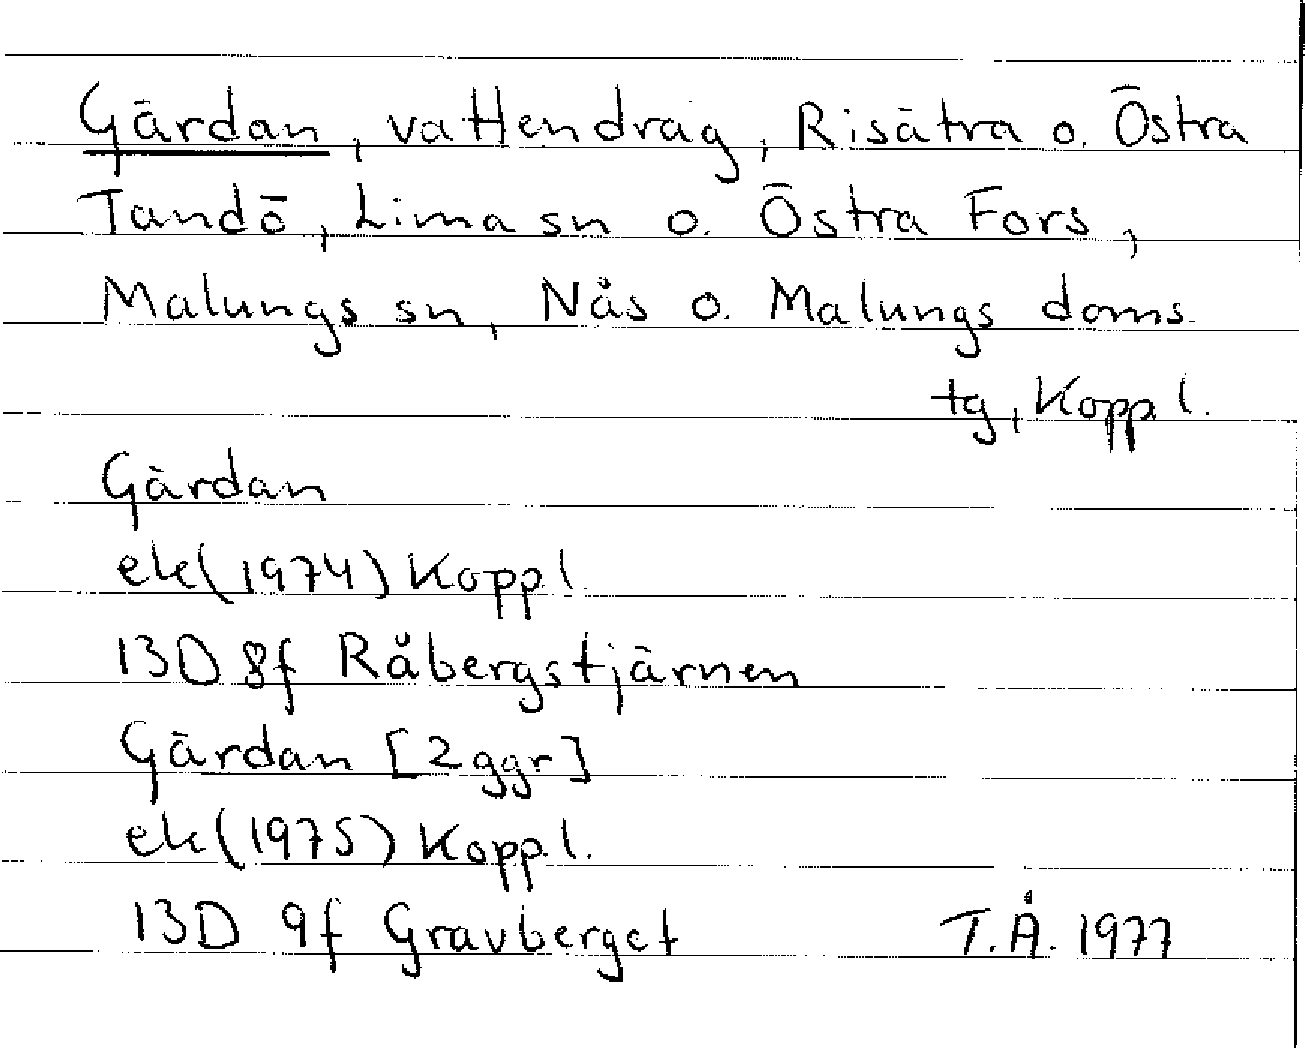 Gärdan, vattendrag, Risätra o. Östra
Tandö, Lima sn o. Östra Fors,
Malungs sn, Nås o. Malungs doms-
tg, Koppl.
Gärdan
ek(1974) Koppl
13D 8f Råbergstjärnen
Gärdan [2 ggr]
ek(1975) Koppl.
13D 9f Gravberget T.Å. 1977